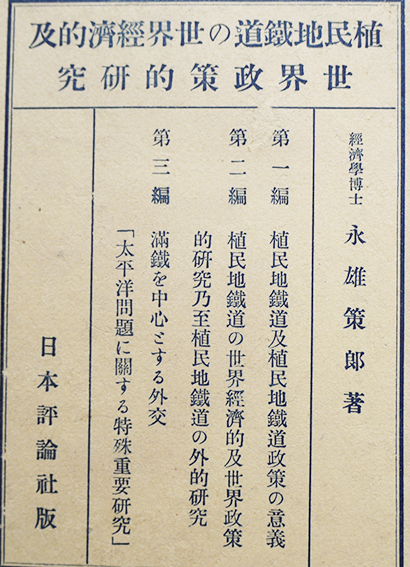 植民地鐵道の世界經濟的及
世界政策的硏究
經濟學博士 永雄策郎著
第一編 植民地鐵道及植民地鐵道政策の意義
第二編 植民地鐵道の世界經濟的及世界政策
的硏究乃至植民地鐵道の外的硏究
第三編 滿鐵を中心とする外交
「太平洋問題に關する特殊重要硏究」
日本評論社版